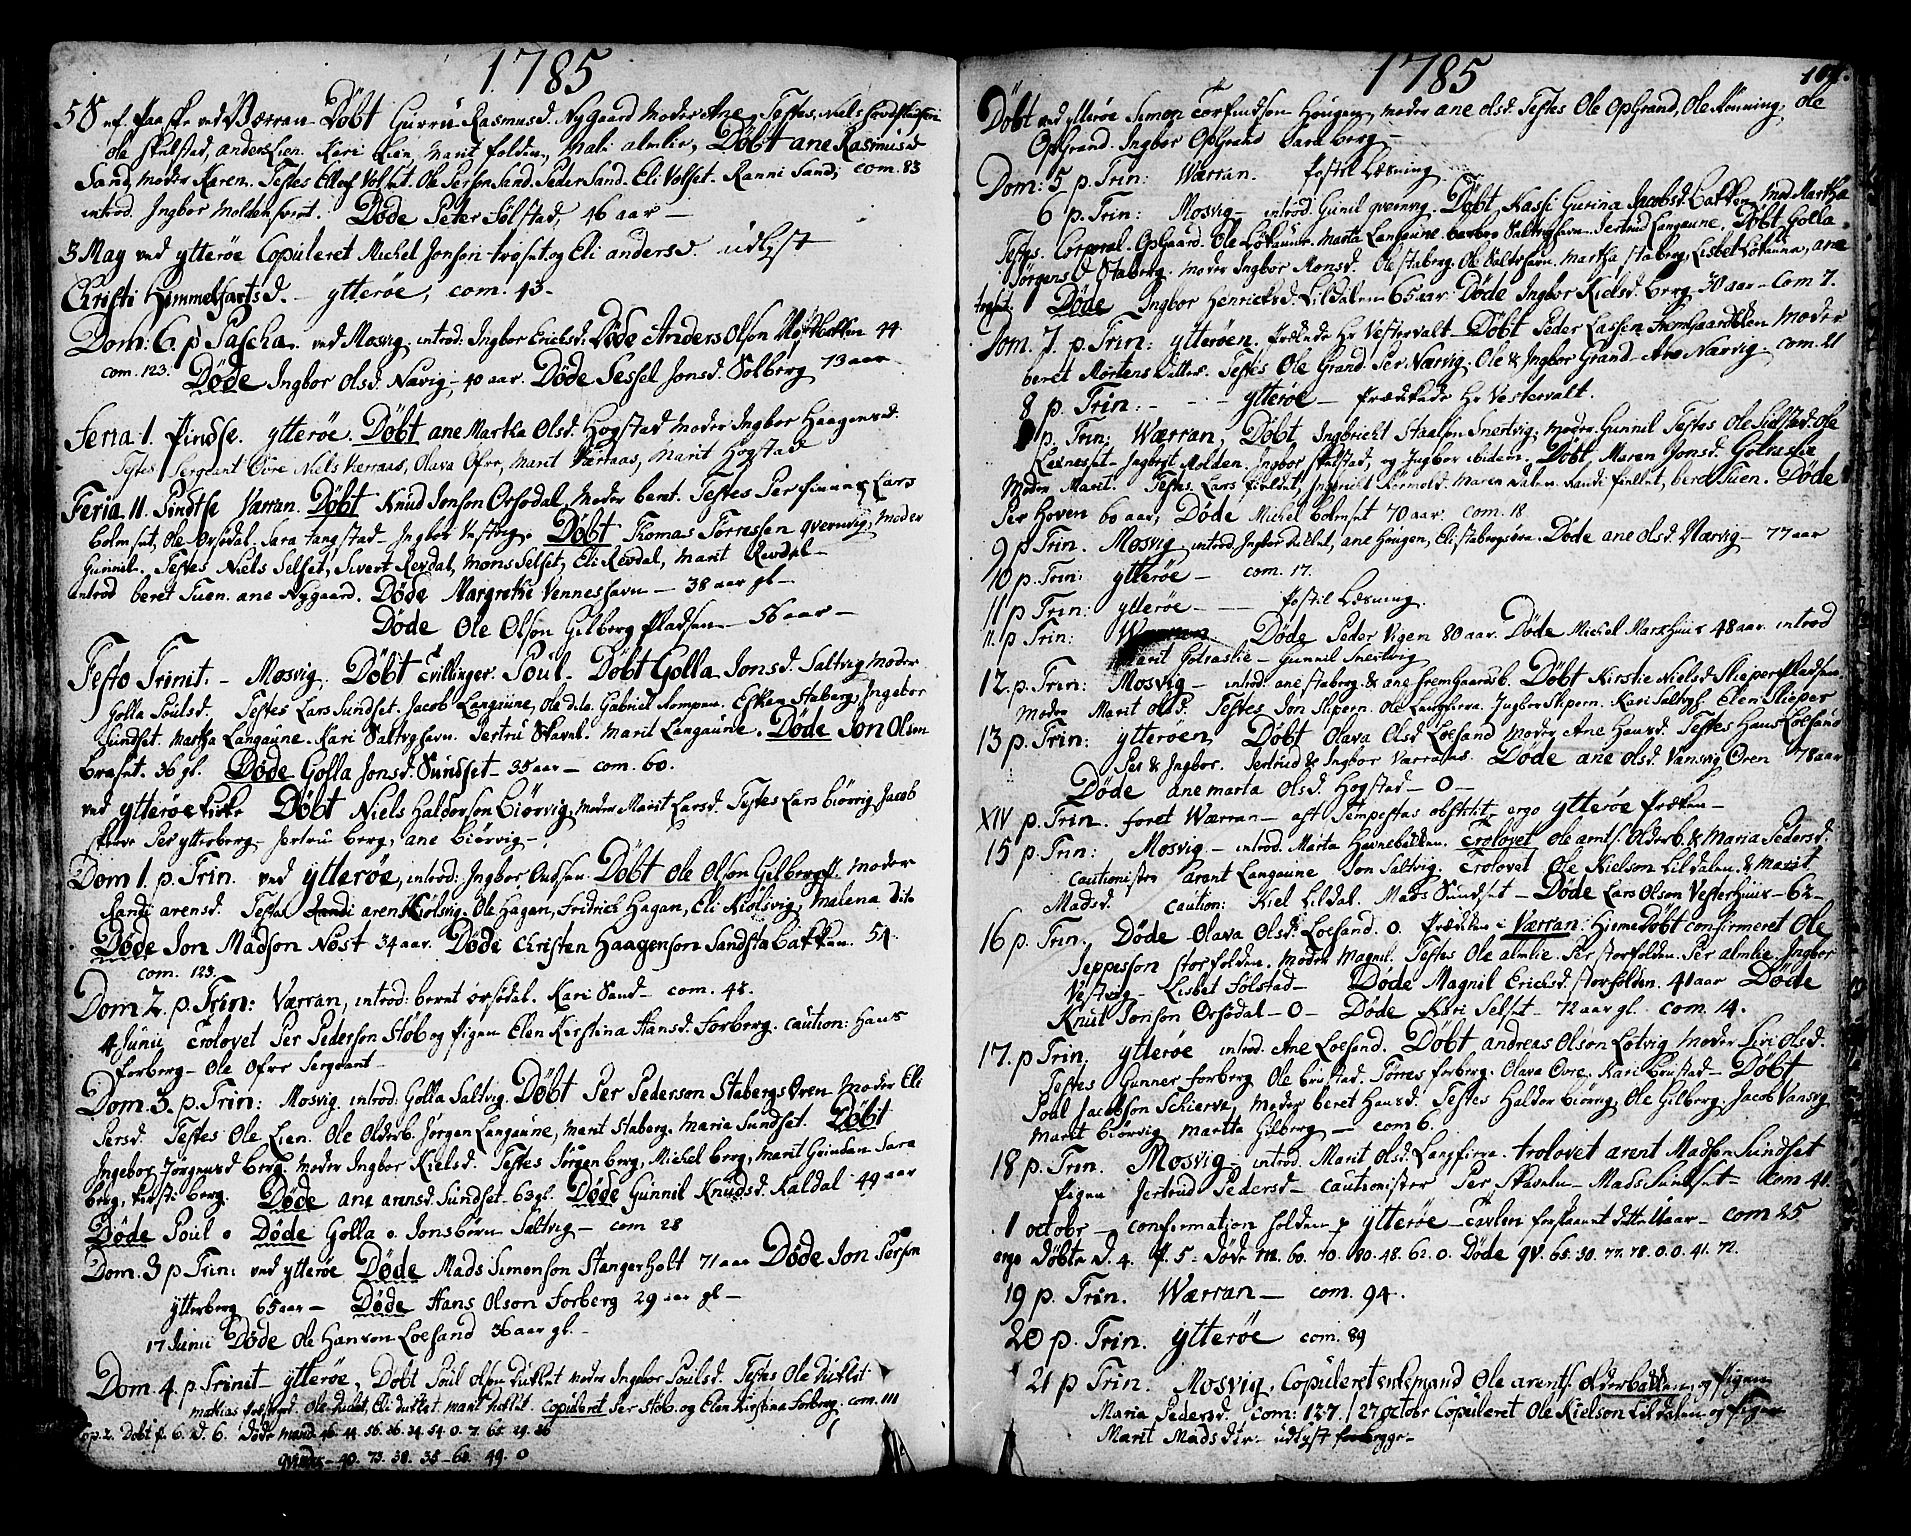 1785
5 S ef. Paaske ved Værran Døbt Gurru Rasmusd. Nygaard Moder Ane, Testes, Niels
ole Skilstad, anders Lien. Kari Lien, Marit folden, Mali almlie, Døbt ane Rasmusd
Sand, moder Karen. Testes Ellef Volset. Ole Person Sand. Peder Sand. Eli Volset. Ranni Sand, com. 83
introd. Ingbor Molden. Døde Peter Sølstad, 46 aar —
3 May ved ytterøe Copuleret Michel Jonson og Eli andersd. udlyst
Christi Himmelfartsd. — ytterøe, com. 43 —
Dom: 6 p Pascha. ved Mosvig, introd: Ingbor Ericlsd. Døde Anders Olson 44
com. 123. Døde Ingbor Olsd. Navig — 40 aar. Døde Sessel Jonsd. Solberg 73 aar
Feria 1. Pindse. ytterøe. Døbt ane Martha Olsd. Hogstad Moder Ingbor Haagensd.
Testes Sergeant Øvre, Niels Værraas, Olava Øfre, Marit Værraas, Marit Hogstad
Feria 11. Pindtse Værran. Døbt Knud Jonson Orsødal, Moder beret. Testes Per Lars
bolmset, Ole Orsødal. Sara Tangstad — Ingbor Vestvig. Døbt Thomas Torressen qvernvig, moder
Gunnil. Testes Niels Selset, Sivert Revdal, Mons Selset, Eli Revdal, Marit Revdal —
introd beret Tuen. ane Nygaard. Døde Margrethe Vennesshavn — 38 aar gl —
Døde Ole Olson Gilberg Pladsen — 56 aar —
Festo Trinit. — Mosvig. Døbt Tvillinger. Poul. Døbt Golla Jonsd. Saltvig Moder
Golla Poulsd. Testes Lars Sundset. Jacob Langaune, Ole dito. Gabriel Rompen. Esken Staberg, Ingebor
Sundset. Martha Langaune. Kari Saltvghavn. Jertru Skavel. Marit Langaune. Døde Jon Olson
36 gl. Døde Golla Jonsd. Sundset — 35 aar — com. 60.
ved ytterøe kirke Døbt Niels Halderson Biørvig, moder Marit Larsd. Testes Lars Biørvig, Jacob
Per ytterberg, Jertru berg, ane Biørvig —
Dom 1. p. Trin. ved ytterøe, introd: Ingbor Døbt Ole Olson Gilberg Moder
Randi arensd. Testes Kiølsvig, Ole Hagan, Fridrich Hagan, Eli Kiølsvig, Malena dito
Døde Jon Madson Nøst 34 aar. Døde Christen Haagenson Sandstabakken. 54.
com. 123.
Dom 2. p. Trin: Værran, introd: beret orsødal. Kari Sand — com. 48.
4 Junii Trolovet Per Pederson Støb og Pigen Elen Kirstina Hansd. Forberg. caution: Hans
Forberg — Ole Øfre Sergeant —
Dom. 3. p. Trin: Mosvig introd: Golla Saltvig. Døbt Per Pederson Stabergs Øren Moder Eli
Persd. Testes Ole Lien. Ole Olderb. Jørgen Langaune, Marit Staberg. Maria Sundset. Døbt
Ingebor Jørgensd berg. Moder Ingbor Kielsd. Testes Jørgen berg, Michel berg, Marit Grindan Sara
berg, kirsti berg. Døde ane arensd. Sundset. 63 gl. Døde Gunnil Knudsd. Kaldal 49 aar
Døde Poul o Døde Golla o Jonsbørn Saltvig — com 28
Dom. 3 p Trin: ved ytterøe Døde Mads Simonson Stangerholt 71 aar Døde Jon Person
ytterberg 65 aar — Døde Hans Olson Forberg 29 aar gl —
17 Junii Døde Ole Hanson Loesand 36 aar gl. —
Dom. 4. p. Trinit — ytterøe, Døbt Poul olson Duklet moder Ingbor Poulsd. Testes Ole Duklet
Ole Duklet, Eli Duklet. Marit Copuleret Per Støb. og Elen Kirstina Forberg. com. 111
Cop. 2. Døbt p. 6. d. 6. Døde mand. 46 44. 56. 36. 34. 54 0. 7. 65. 29. 36
qvinde — 40. 73. 38. 35 — 63. 49. 0
1785
Døbt ved ytterøe Simon Torfindson Hougen, Moder ane olsd. Testes Ole OpGrand, Ole Rønning, Ole
OpGrand. Ingbor OpGrand Sara berg —
Dom: 5 p. Trin: Værran. Postil Læsning
6 p. Trin: Mosvig — introd. Gunil qvernvig. Døbt Kassi Gurina Jacobsd. Bakken, Moder Martha
Testes. Corporal. OpGaard. Ole Løtaune. Marta Langaune. Saltvghavn. Jertrud Langaune, Døbt Golla
Jørgensd Staberg. Moder Ingbor Monsd. Ole Staberg. Ole Saltvghavn. Martha Staberg, Lisbet Løtaune, ane
Døde Ingbor Henricksd. Lildalen 65 aar Døde Ingbor Kielsd. berg 30 aar — Com 7.
Dom. 7. p. Trin: ytterøen. Prædikede Hr Vestervalt — Døbt Peder Lassen Moder
beret Mortens datter. Testes Ole Grand. Per Nærvig. Ole & Ingbor Grand — Ane Nærvig. com. 21
8 p. Trin: — ytterøe — Prædikede Hr Vestervalt.
p. Trin: Værran, Døbt Ingbricht Staalson Snertvig, moder Gunnil Testes Ole Sulstad. Ole
— Ingbrigt Molden. Ingbor Skilstad, og Ingbor ibidem. Døbt Maren Jonsd. Gotraslie
Moder Marit. Testes Lars fieldet, Ingbricht Maren dalen. Randi fiellet, beret Tuen. Døde
Per Hoven 60 aar, Døde Michel bolmset 70 aar. com. 18
9 p Trin. Mosvig introd Ingbor Duklet, ane Hougen, Eli Stabergsøra. Døde ane olsd. Nærvig — 77 aar
10 p. Trin: ytterøe — com. 17.
11 p Trin: ytterøe — Postil Læsning.
11. p Trin: Værran Døde Peder Vigen 80 aar. Døde Michel Markhuus 48 aar. introd
Marit Gotraslie — Gunnil Snertvig
12. p. Trin: Mosvig — introd. ane Staberg & ane fremgaardsb. Døbt Kirstie Nielsd Skieper
Moder Marit olsd. Testes Jon Skipern. Ole Langfiera. Ingbor Skipern. Kari Saltvgh Elen Skieper
13 p. Trin: ytterøen, Døbt Olava Olsd Loesand Moder Ane Hansd. Testes Hans Loesand
Per & Ingbor. Jertrud & Ingbor Værraas. Døde ane olsd. Vansvig Øren 78 aar
Døde ane marta olsd. Hogstad — 0 —
XIV p. Trin. foret Værran — ast Tempestas obstitit, ergo ytterøe Præken —
15 p. Trin: Mosvig — introd. Marta Havnebakken. Trolovet Ole arntß. Olderb. & Maria Pedersd.
Cautionister arent Langaune Jon Saltvig. Trolovet Ole Kielson Lildalen. & Marit
Madsd. caution: Kiel Lildal. Mads Sundset — Døde Lars Olson Vesterhuus — 62 —
16 p. Trin. Døde Olava Olsd. Loesand. 0. Præken i Værran. Hiemedøbt confirmeret Ole
Jeppesson Storfolden. Moder Magnil. Testes Ole almlie. Per Storfolden. Per almlie. Ingbor
Vestvig — Lisbet Folstad — Døde Magnil Ericksd. Storfolden. 41 aar Døde
Knut Jonson Orsødal — 0 — Døde Kari Selset — 72 aar gl. com. 14.
17. p Trin. ytterøe introd. Ane Loesand. Døbt andreas Olson Lotvig Moder Livi Olsd.
Testes Gunner forberg. Ole brustad. Torres forberg. Olava Øvre. Kari brustad — Døbt
Poul Jacobson Schierve, moder beret Hansd. Testes Haldor Biørvig, Ole Gilberg, Jacob Vansvig
Marit Biørvig Martta Gilberg — com 6.
18 p. Trin. Mosvig, introd. Marit Olsd. Langfirra. trolovet arent Madson Sundset
Pigen Jertrud Pedersd — Cautionister Per Skaveln — Mads Sundset — Com 41.
1 octobr — confirmation holden p ytterøe — Com 25
ergo Døbte d. 4. P. 5 — Døde m. 60. 70. 80. 48. 62. 0. Døde qv. 65. 30. 77. 78. 0. 0. 41. 72.
19 p. Trin. Værran — com. 94.
20 p. Trin. ytterøe com. 89
21 p Trin. Mosvig, Copuleret enkemand Ole arentß. Olderbakken, og Pigen
Maria Pedersd. com: 127. / 27 octobr Copuleret Ole Kielson Lildalen og Pigen
Marit Madsdtr. — udlyst —